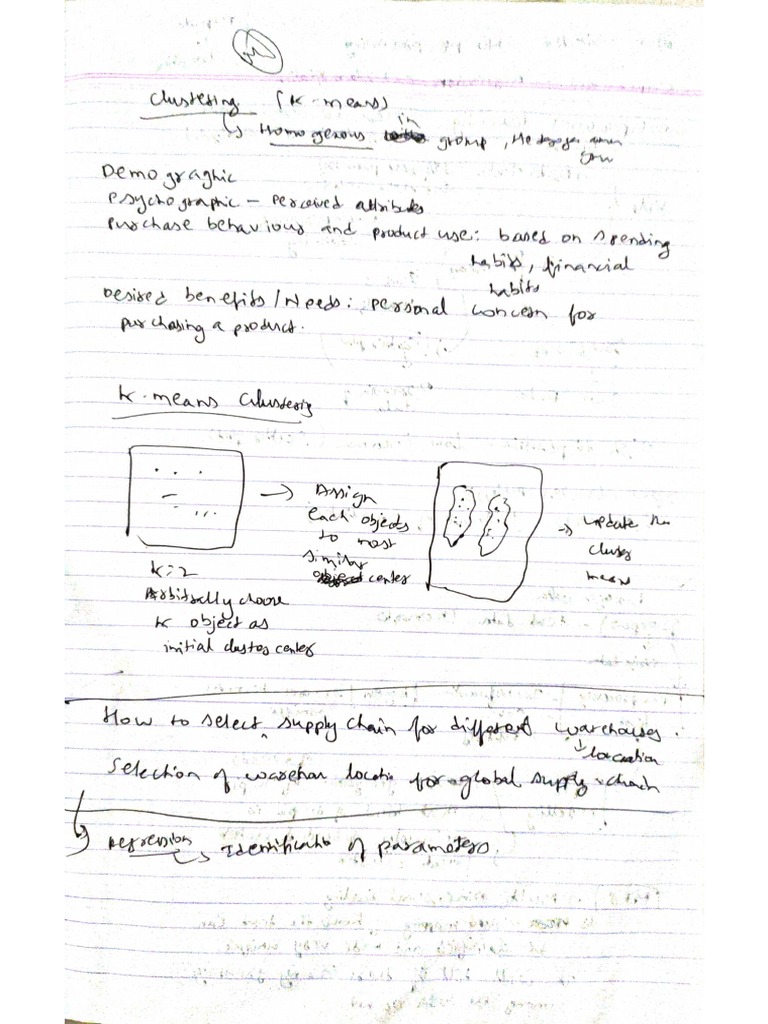 Clustering (K-means)
↳ Homogenous in group, 
Demographic
Psychographic – Perceived attributes
Purchase behaviour and product use: based on spending
habits, financial
habits
Desired benefits/Needs: Personal concern for
purchasing a product.
K-means Clustering
K=2
Arbitrally choose
K object as
initial cluster center
→ Assign
each objects
to most
similar
center
→ update the
cluster
means
How to select supply chain for different warehouses.
↓ location
Selection of warehou locatio for global supply chain
Regression ↳ Identificatio of parameters.